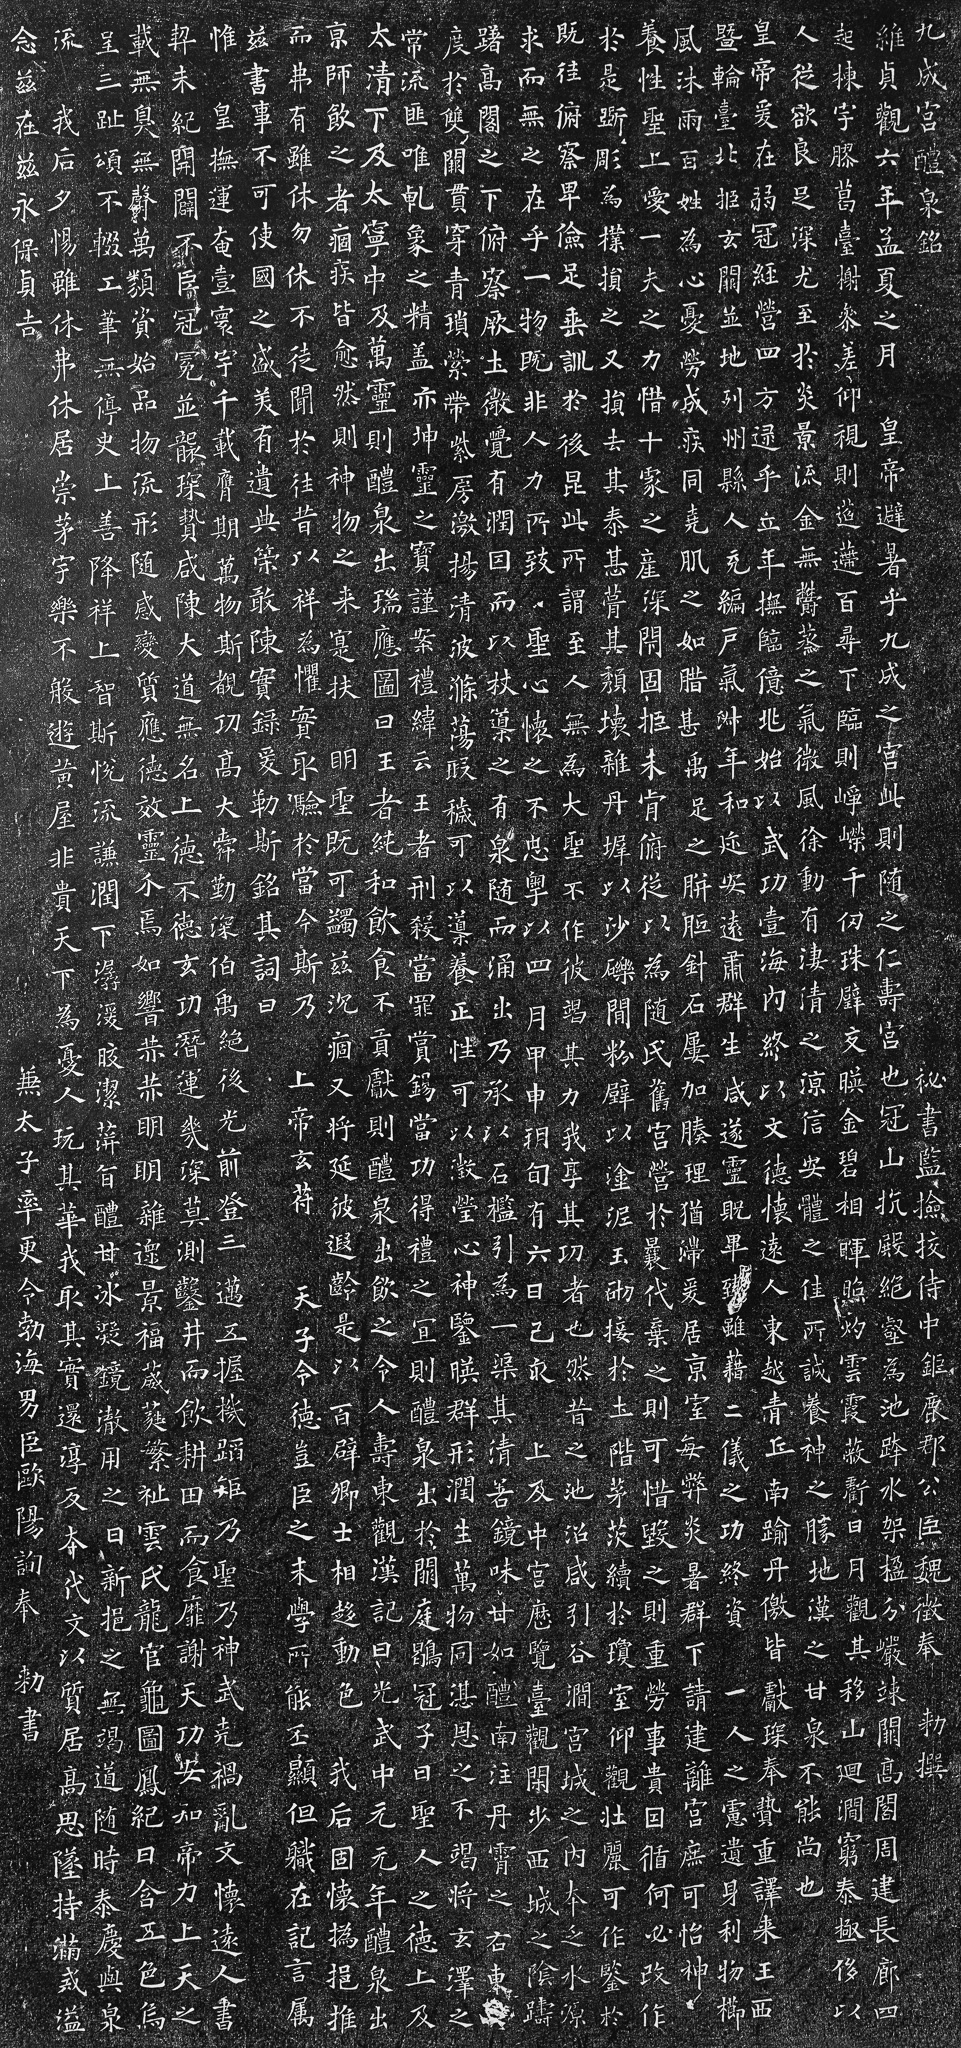 九成宮醴泉銘 祕書監撿挍侍中鉅鹿郡公臣魏徵奉 勅撰
維貞觀六年孟夏之月 皇帝避暑乎九成之宮此則隨之仁壽宮也冠山抗殿絕壑為池跨水架楹分巖竦闕高閣周建長廊四
起棟宇膠葛臺榭參差仰視則迢遰百尋下臨則崢嶸千仞珠璧交暎金碧相暉照灼雲霞蔽虧日月觀其移山迴澗窮泰極侈以
人從欲良足深尤至於炎景流金無鬱蒸之氣微風徐動有淒清之涼信安體之佳所誠養神之勝地漢之甘泉不能尚也
皇帝爰在弱冠經營四方逮乎立年撫臨億兆始以武功壹海內終以文德懷遠人東越青丘南踰丹儌皆獻琛奉贄重譯来王西
暨輪臺北拒玄闕並地列州縣人充編戶氣淑年和迩安遠肅群生咸遂靈貺畢臻雖藉二儀之功終資 一人之慮遺身利物櫛
風沐雨百姓為心憂勞成疾同堯肌之如腊甚禹足之胼胝針石屢加腠理猶滯爰居京室每弊炎暑群下請建離宮庶可怡神
養性聖上愛一夫之力惜十家之產深閇固拒未肯俯從以為隨氏舊宮營於曩代棄之則可惜毀之則重勞事貴因循何必改作
於是斲彫為樸損之又損去其泰甚葺其頹壞雜丹墀以沙礫間粉壁以塗泥玉砌接於土階茅茨續於瓊室仰觀壯麗可作鑒於
既往俯察卑儉足垂訓於後昆此所謂至人無為大聖不作彼竭其力我享其功者也然昔之池沼咸引谷澗宮城之內本乏水源
求而無之在乎一物既非人力所致聖心懷之不忘粵以四月甲申朔旬有六日己亥 上及中宮歷覽臺觀閑步西城之陰躊
躇高閣之下俯察厥土微覺有潤因而以杖導之有泉隨而涌出乃承以石檻引為一渠其清若鏡味甘如醴南注丹霄之右東
度於雙闕貫穿青瑣縈帶紫房激揚清波滌蕩瑕穢可以導養正性可以澂瑩心神鑒暎群形潤生萬物同湛恩之不竭將玄澤之
常流匪唯乹象之精盖亦坤靈之寶謹案禮緯云王者刑殺當罪賞錫當功得禮之宜則醴泉出於闕庭鶡冠子曰聖人之德上及
太清下及太寧中及萬靈則醴泉出瑞應圖曰王者純和飲食不貢獻則醴泉出飲之令人壽東觀漢記曰光武中元元年醴泉出
京師飲之者痼疾皆愈然則神物之来寔扶 明聖既可蠲兹沉痼又将延彼遐齡是以百辟卿士相趍動色 我后固懷撝挹推
而弗有雖休勿休不徒聞於往昔以祥為懼實取驗於當今斯乃 上帝玄符 天子令德豈臣之末學所能丕顯但職在記言属
兹書事不可使國之盛美有遺典策敢陳實錄爰勒斯銘其詞曰
惟 皇撫運奄壹寰宇千載膺期萬物斯覩功高大舜勤深伯禹絕後光前登三邁五握機蹈矩乃聖乃神武克禍亂文懷遠人書
契未紀開闢不臣冠冕並襲琛贄咸陳大道無名上德不德玄功潛運幾深莫測鑿井而飲耕田而食靡謝天功安知帝力上天之
載無臭無聲萬類資始品物流形随感變質應德效靈介焉如響赫赫明明雜遝景福葳蕤繁祉雲氏龍官龜圖鳳紀日含五色烏
呈三趾頌不輟工筆無停史上善降祥上智斯悅流謙潤下潺湲皎潔蓱旨醴甘冰凝鏡澈用之日新挹之無竭道随時泰慶與泉
流 我后夕惕雖休弗休居崇茅宇樂不般遊黃屋非貴天下為憂人玩其華我取其實還淳反本代文以質居高思墜持滿戒溢
念兹在兹永保貞吉 兼太子率更令勃海男臣歐陽詢奉 勅書